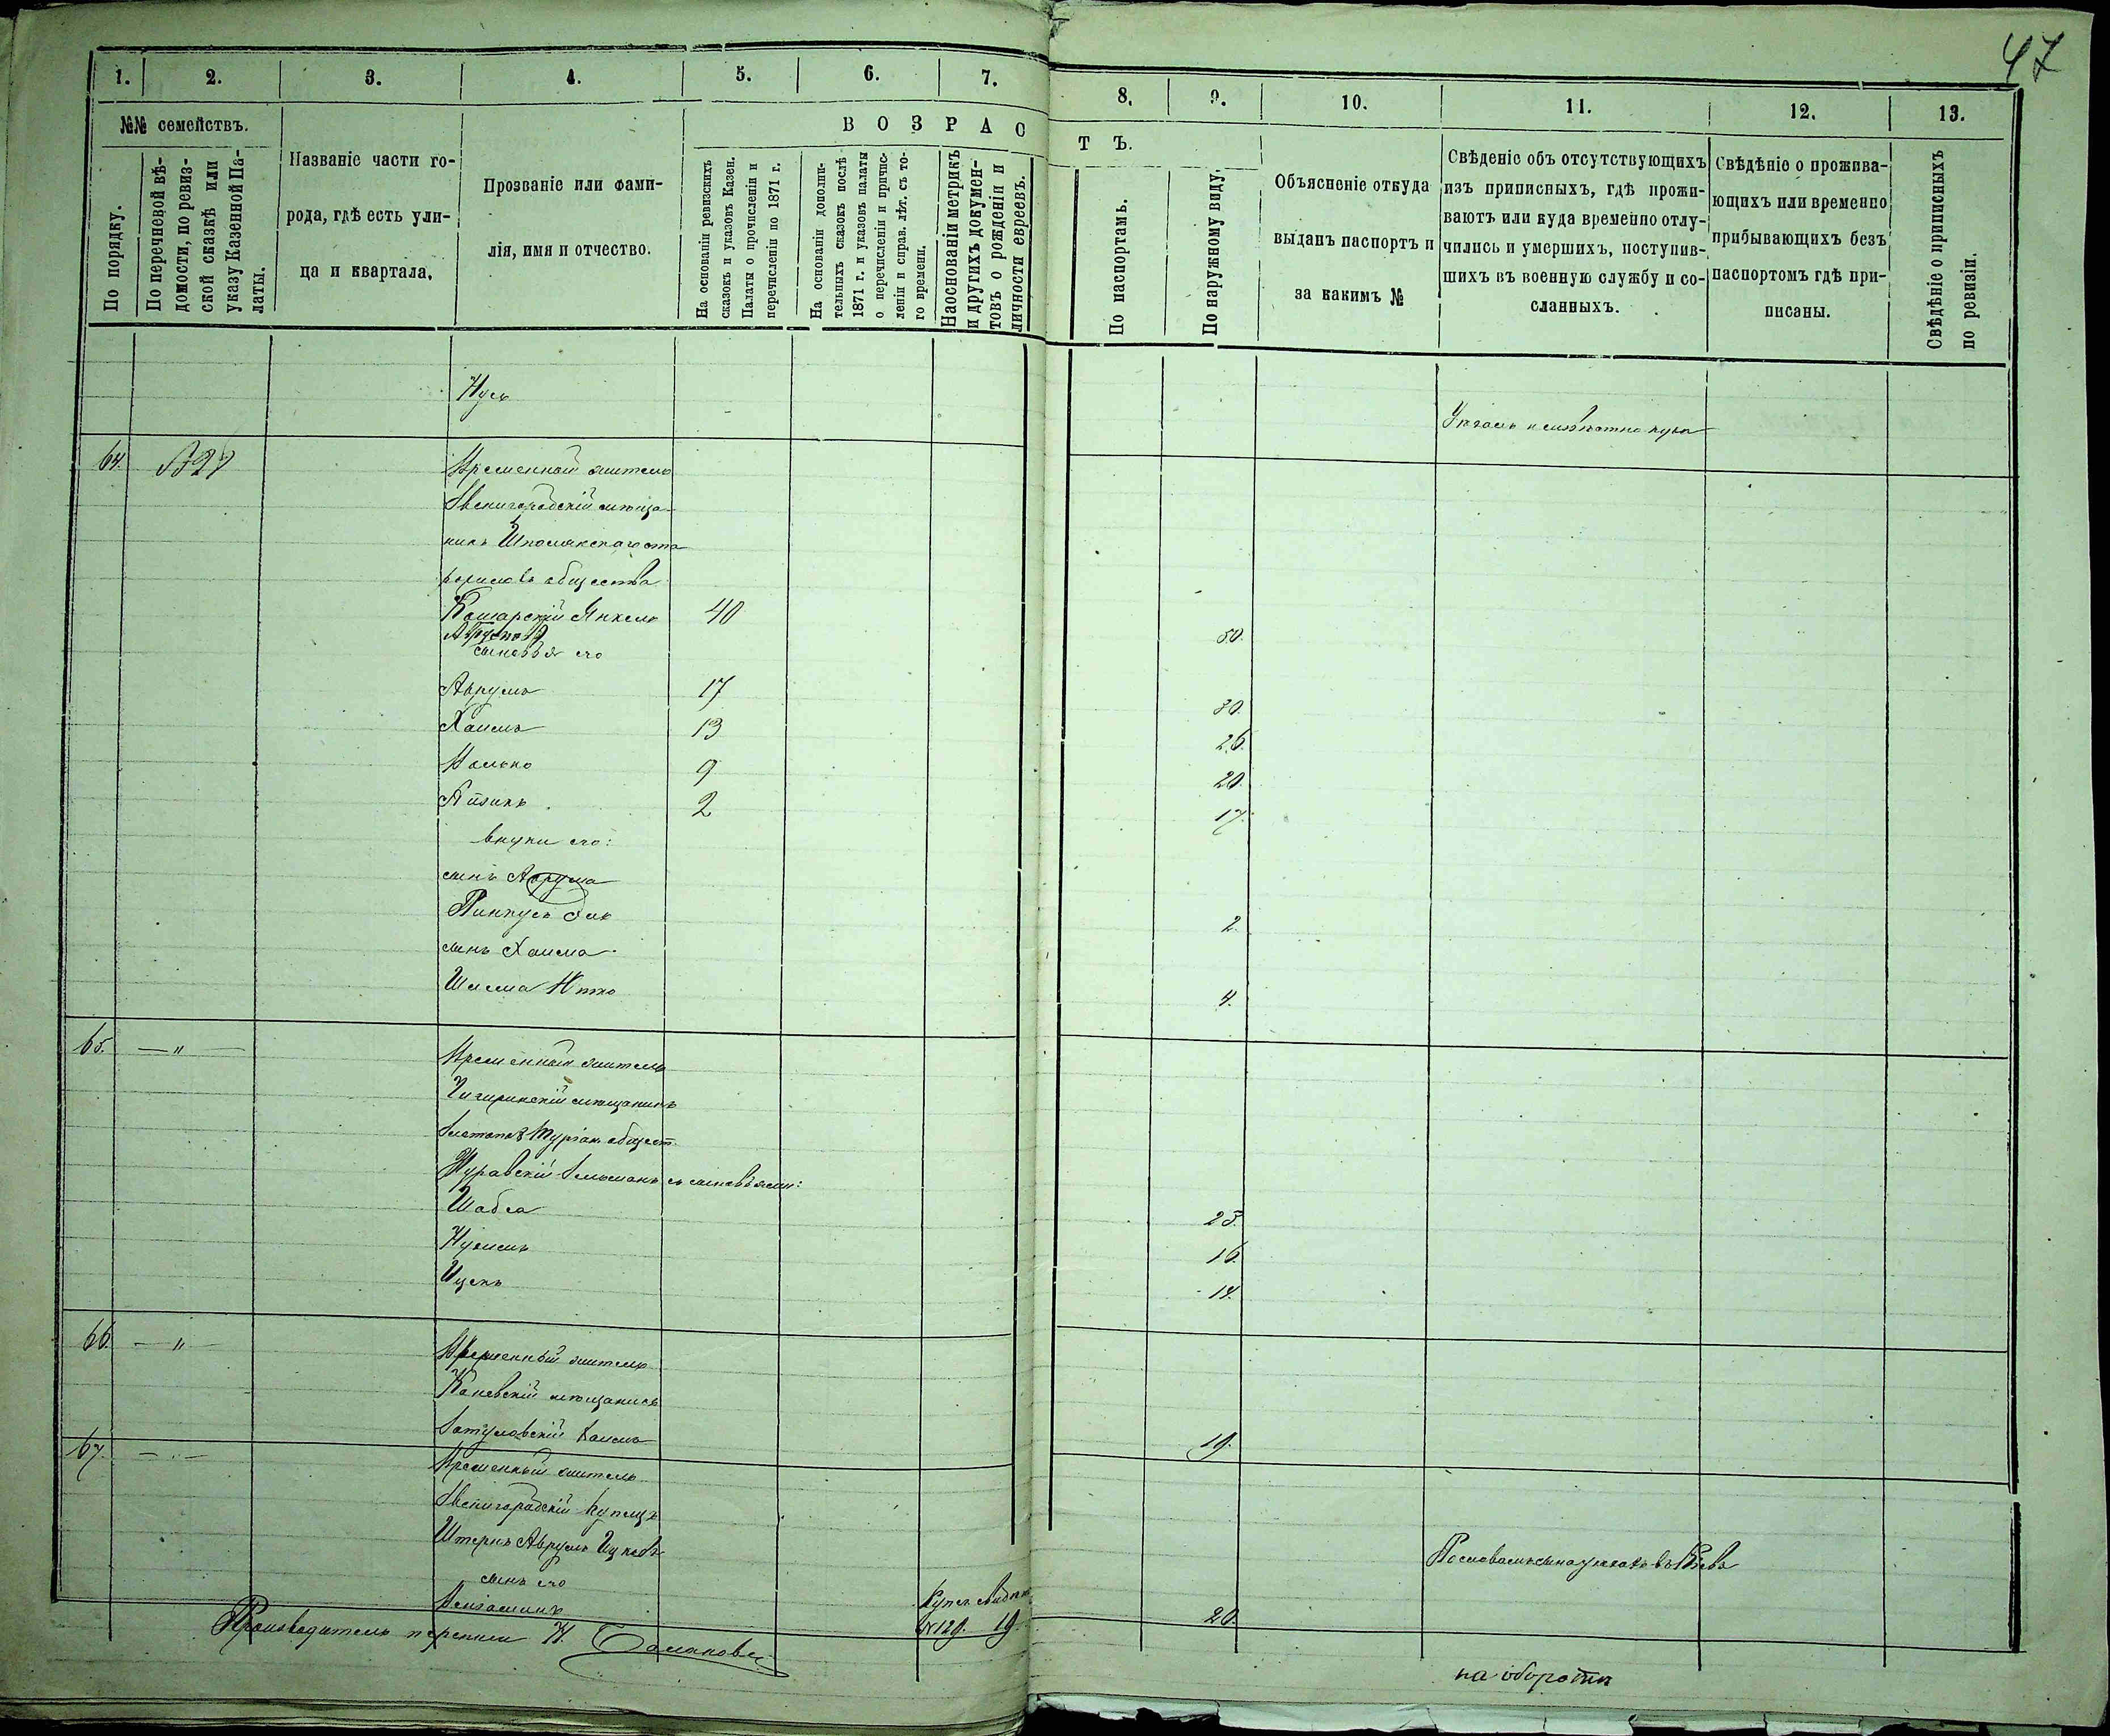 47
1. 2. 3. 4. 5. 6. 7. 8. 9. 10. 11. 12. 13.
№№ семействъ.
По порядку.
По перечневой вѣ-
домости, по ревиз-
ской сказкѣ или
указу Казенной Па-
латы.
Названіе части го-
рода, гдѣ есть ули-
ца и квартала.
Прозваніе или фами-
лія, имя и отчество.
ВОЗРАСТЪ.
На основаніи ревизскихъ
сказокъ и указовъ Казен.
Палаты о прочисленіи и
перечисленіи по 1871 г.
На основаніи дополни-
тельныхъ сказокъ послѣ
1871 г. и указовъ палаты
о перечисленіи и причис-
леніи и справ. лѣт. съ то-
го времени.
На основаніи метрикъ
и другихъ докумен-
товъ о рожденіи и
личности евреевъ.
По паспортамъ.
По наружному виду.
Объясненіе откуда
выданъ паспортъ и
за какимъ №
Свѣденіе объ отсутствующихъ
изъ приписныхъ, гдѣ прожи-
ваютъ или куда временно отлу-
чились и умершихъ, поступив-
шихъ въ военную службу и со-
сланныхъ.
Свѣдѣніе о прожива-
ющихъ или временно
прибывающихъ безъ
паспортомъ гдѣ при-
писаны.
Свѣдѣніе о приписныхъ
по ревизіи.
Нусь
64.
Временный житель
Звенигородскій мѣща-
нинъ Шполянскаго ста
рорусловъ общества
Кошарскій Янкель 40
Аврумовъ 50.
сыновья его
Аврумъ 17 30.
Хаимъ 13 26.
9 20.
Айзикъ 2 17.
внуки его:
сынъ Аврума
Пинхусъ 2.
сынъ Хаима
Шлема 4.
65. — " —
Временный житель
Чигиринскій мѣщанинъ
общест.
Журавскій Зельманъ съ сыновьями:
Шабса 23.
Нухимъ 16.
Ицекъ 14.
66. — " —
Временный житель
Каневскій мѣщанинъ
Затуловскій Хаимъ 19.
67. — " —
Временный житель
Звенигородскій купецъ
Штернъ Аврумъ Ицковъ
сынъ его
Веніаминъ 20.
№ 129. 19
Производитель переписи
на оборотѣ